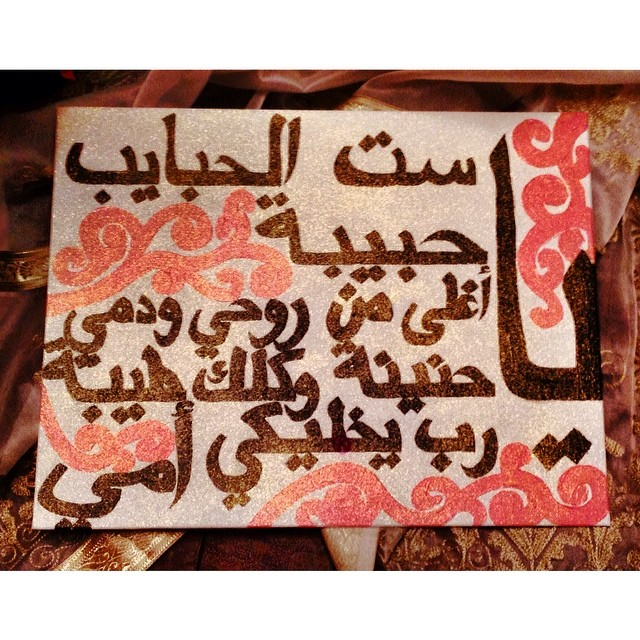 يا
ست الحبايب
حبيبة
أغلى من روحي ودمي
حنينة وكلك طيبة
رب يخليكي أمي